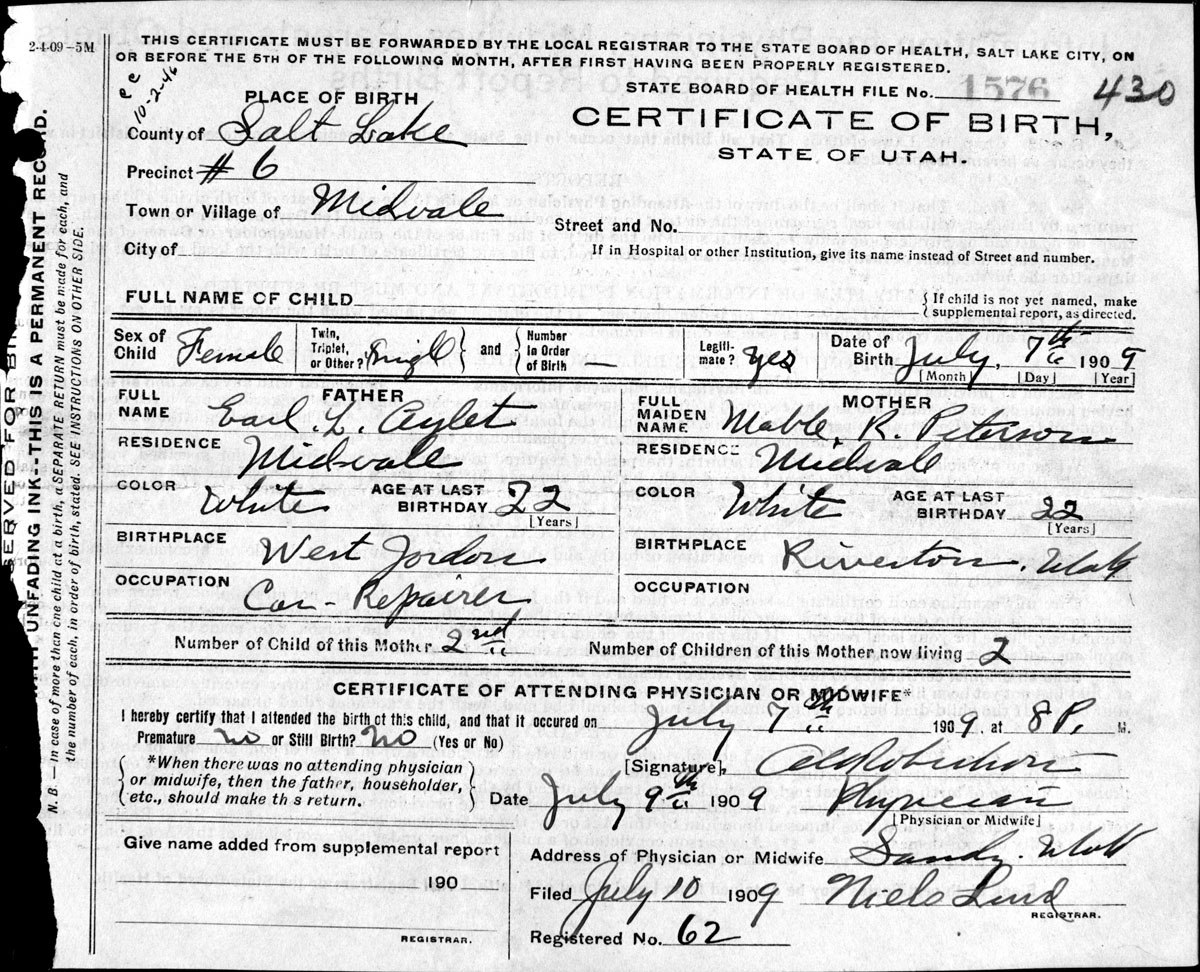 2-4-09-5M
THIS CERTIFICATE MUST BE FORWARDED BY THE LOCAL REGISTRAR TO THE STATE BOARD OF HEALTH, SALT LAKE CITY, ON
OR BEFORE THE 5TH OF THE FOLLOWING MONTH, AFTER FIRST HAVING BEEN PROPERLY REGISTERED.
10-2-46
STATE BOARD OF HEALTH FILE No. 1576 430
PLACE OF BIRTH
CERTIFICATE OF BIRTH,
STATE OF UTAH.
County of Salt Lake
Precinct #6
Town or Village of Midvale
Street and No.
City of
If in Hospital or other Institution, give its name instead of Street and number.
FULL NAME OF CHILD
{ If child is not yet named, make
supplemental report, as directed.
Sex of Child Female
Twin, Triplet, or Other? Single } and { Number in Order of Birth —
Legiti-mate? yes
Date of Birth July, 7th 1909
[Month] [Day] [Year]
FATHER
FULL NAME Earl. L. Aylet
MOTHER
FULL MAIDEN NAME Mable, R. Peterson
RESIDENCE Midvale
RESIDENCE Midvale
COLOR White AGE AT LAST BIRTHDAY 22 [Years]
COLOR White AGE AT LAST BIRTHDAY 22 [Years]
BIRTHPLACE West Jordon
BIRTHPLACE Riverton. Utah
OCCUPATION Car-Repairer
OCCUPATION
Number of Child of this Mother 2nd
Number of Children of this Mother now living 2
CERTIFICATE OF ATTENDING PHYSICIAN OR MIDWIFE*
I hereby certify that I attended the birth of this child, and that it occured on July 7th 1909, at 8P. M.
Premature no or Still Birth? no (Yes or No)
{ *When there was no attending physician
or midwife, then the father, householder,
etc., should make th s return. }
[Signature], Robertson
Date July 9th 1909 Physician
[Physician or Midwife]
Give name added from supplemental report
190
REGISTRAR.
Address of Physician or Midwife Sandy. Utah
Filed July 10 1909 Niels Lind
REGISTRAR.
Registered No. 62
SERVED FOR BIN
UNFADING INK--THIS IS A PERMANENT RECORD.
N. B. — In case of more than one child at a birth, a SEPARATE RETURN must be made for each, and
the number of each, in order of birth, stated. SEE INSTRUCTIONS ON OTHER SIDE.